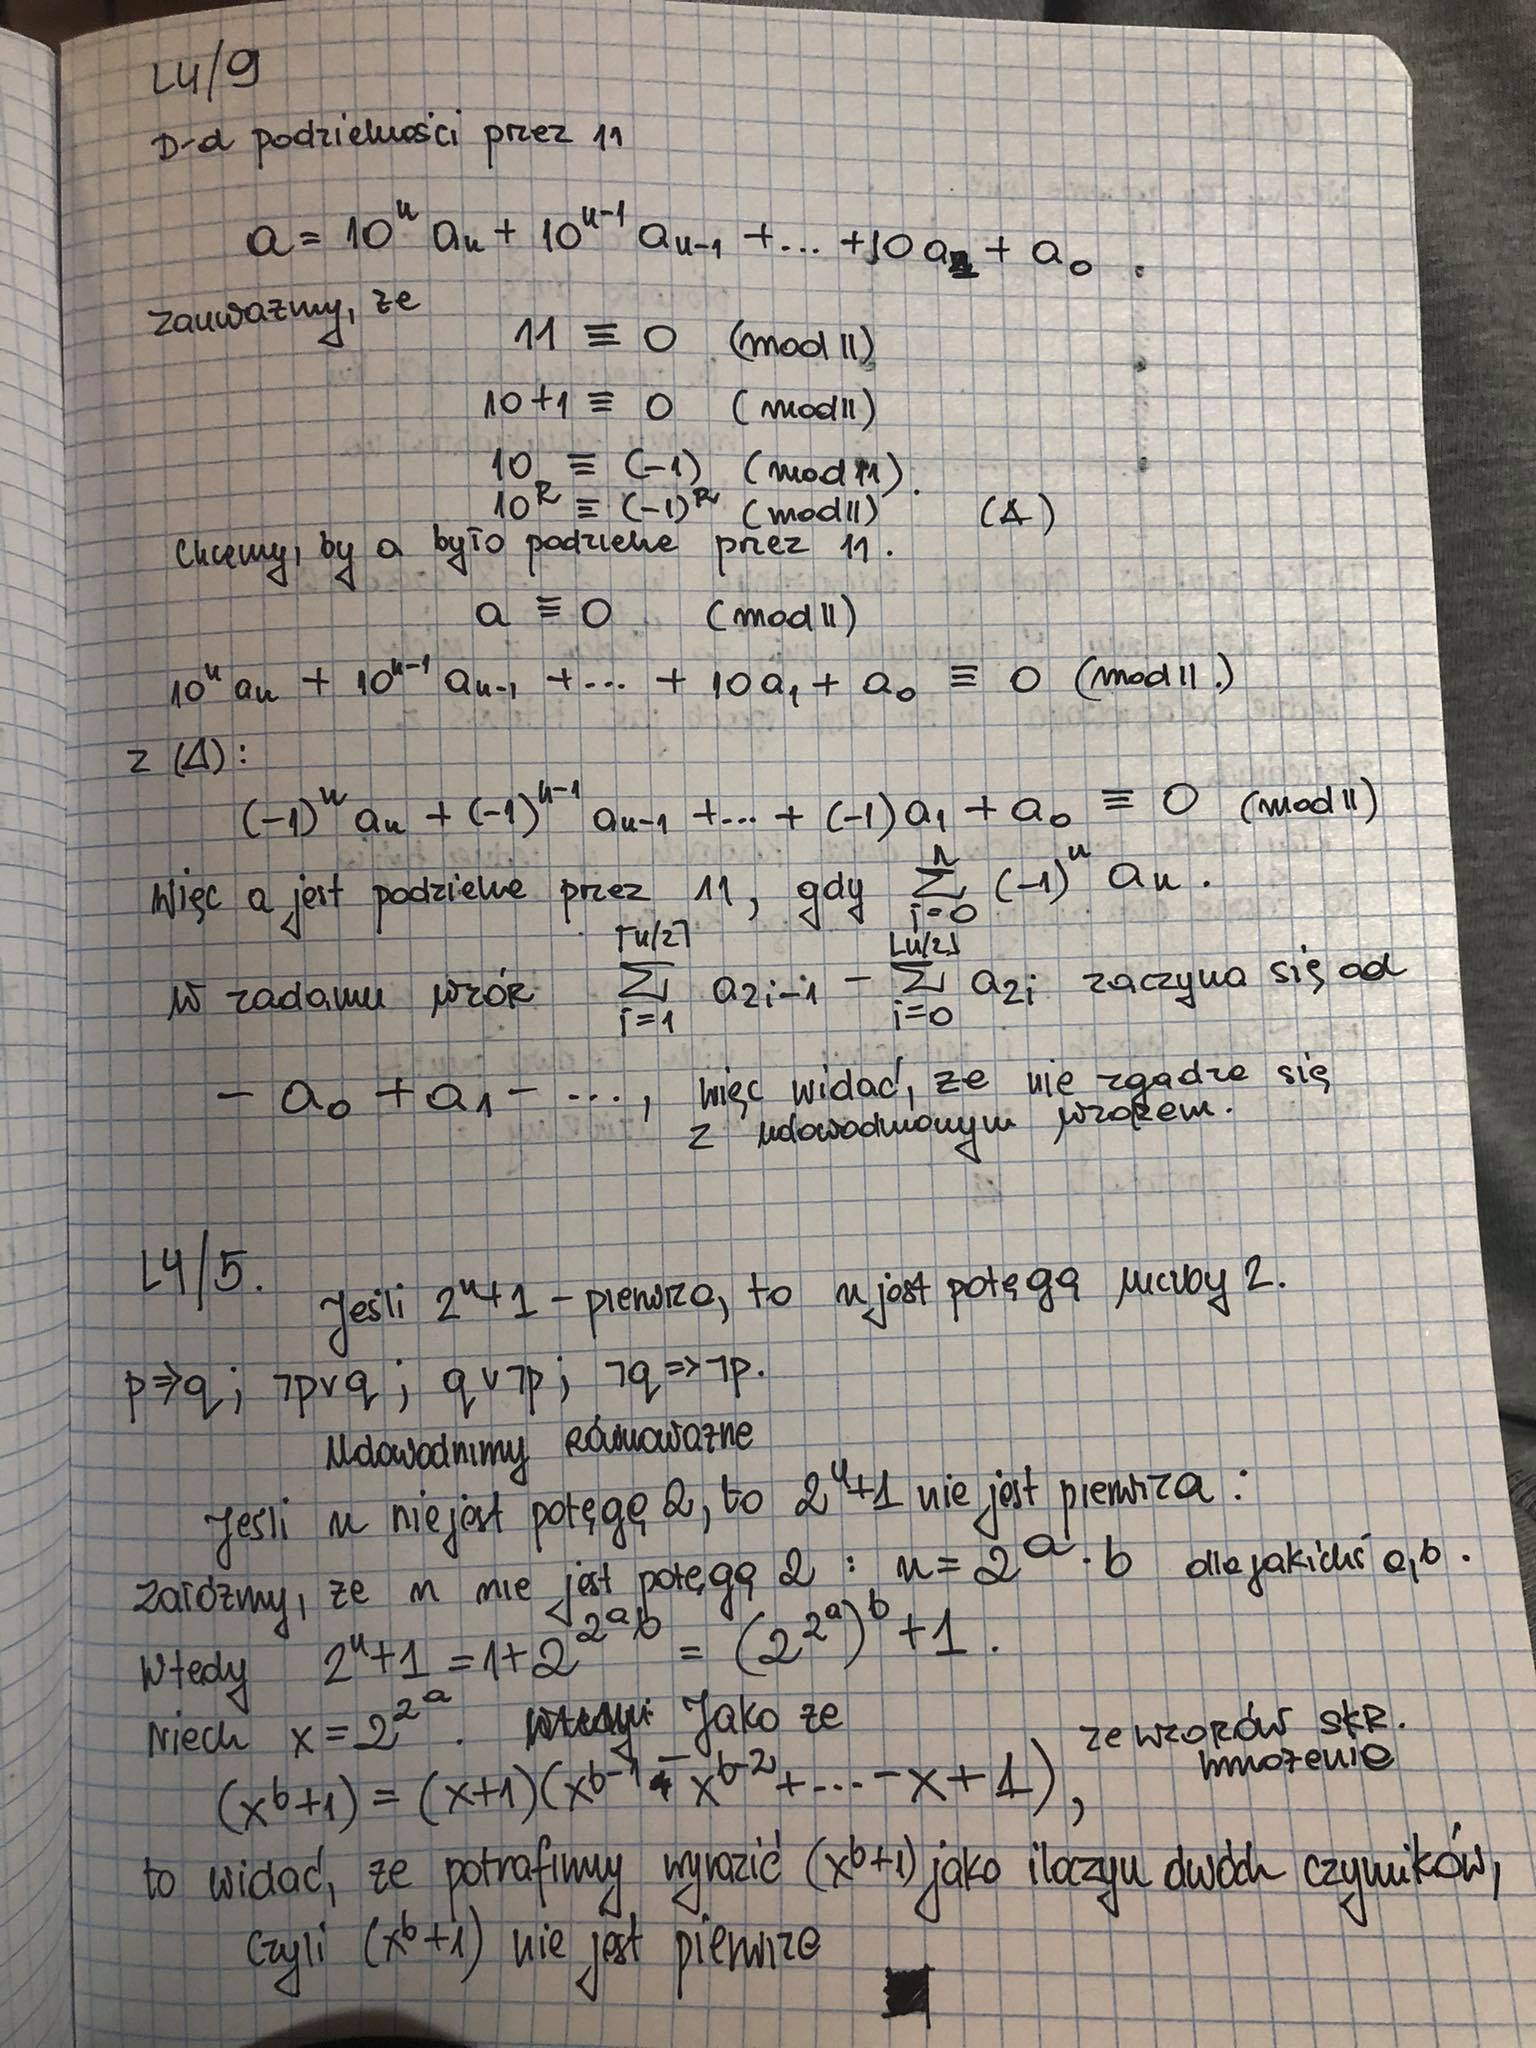 L4/9
D-d podzielności przez 11
a = 10^n a_n + 10^{n-1} a_{n-1} + ... + 10 a_1 + a_0 .
zauważmy, że
11 ≡ 0 (mod 11)
10+1 ≡ 0 (mod 11)
10 ≡ (-1) (mod 11).
10^k ≡ (-1)^k (mod 11) (Δ)
Chcemy, by a było podzielne przez 11.
a ≡ 0 (mod 11)
10^n a_n + 10^{n-1} a_{n-1} + ... + 10 a_1 + a_0 ≡ 0 (mod 11.)
z (Δ):
(-1)^n a_n + (-1)^{n-1} a_{n-1} + ... + (-1) a_1 + a_0 ≡ 0 (mod 11)
więc a jest podzielne przez 11, gdy \sum_{i=0}^{n} (-1)^n a_n .
w zadaniu wzór \sum_{i=1}^{⌈n/2⌉} a_{2i-1} - \sum_{i=0}^{⌊n/2⌋} a_{2i} zaczyna się od
- a_0 + a_1 - ..., więc widać, że nie zgadza się
z udowodnionym wzorem.
L4/5.
Jeśli 2^n+1 - pierwsza, to n jest potęgą liczby 2.
p⇒q ; ¬p∨q ; q∨¬p ; ¬q⇒¬p.
Udowodnimy równoważne
Jeśli n nie jest potęgą 2, to 2^n+1 nie jest pierwsza :
Załóżmy, że n nie jest potęgą 2 : n = 2^a · b dla jakichś a, b .
Wtedy 2^n+1 = 1+2^{2^a b} = (2^{2^a})^b + 1 .
Niech x = 2^{2^a} . Jako że
(x^b+1) = (x+1)(x^{b-1} - x^{b-2} + ... - x + 1), ze wzorów skr.
mnożenia
to widać, że potrafimy wyrazić (x^b+1) jako iloczyn dwóch czynników,
czyli (x^b+1) nie jest pierwsza